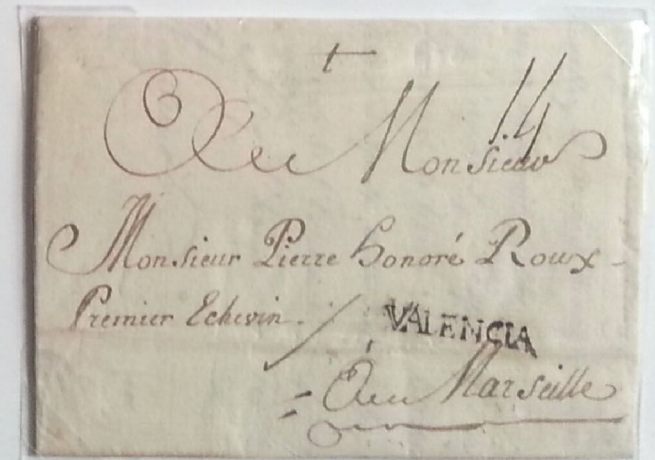 14
A Monsieur
Monsieur Pierre honoré Roux
Premier Echevin.
VALENCIA
A Marseille